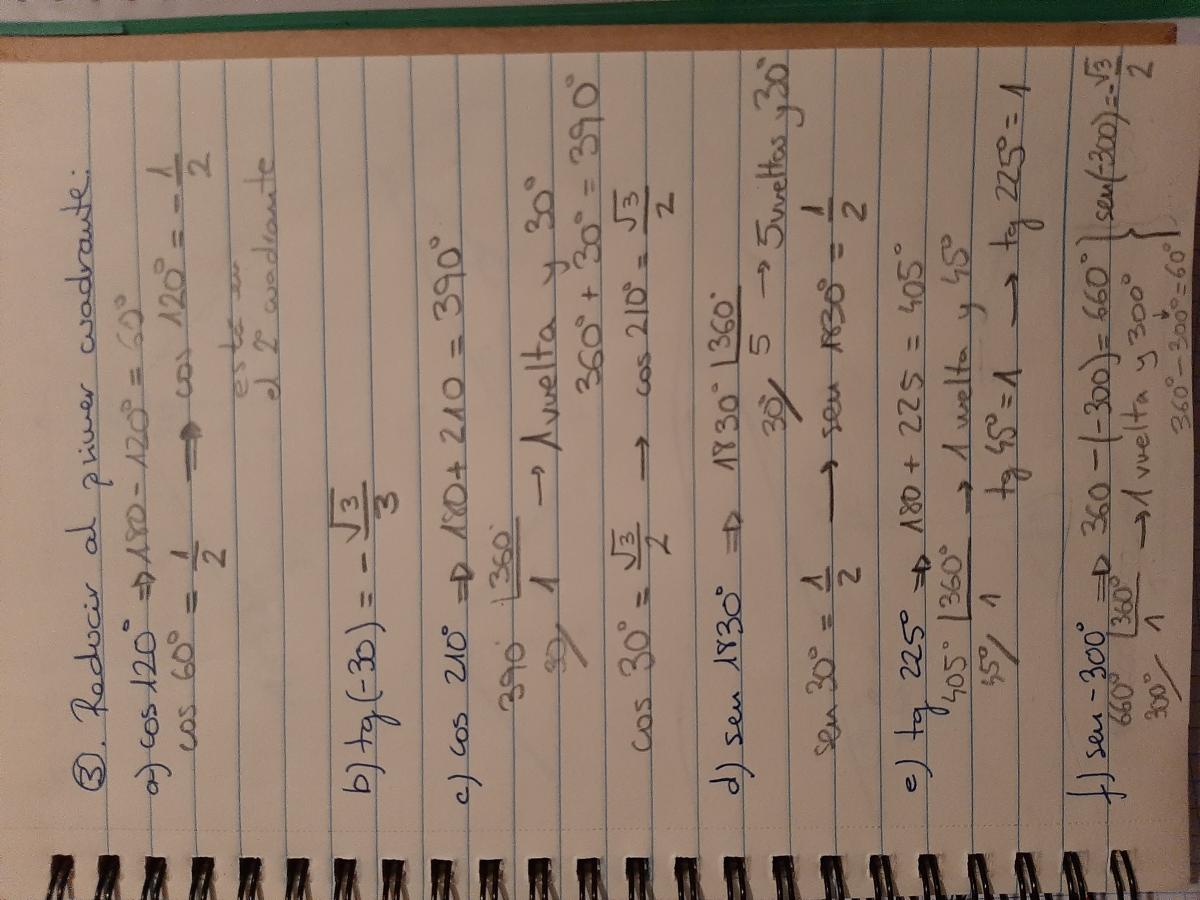 ③. Reducir al primer cuadrante:
a) cos 120° ⇒ 180 - 120° = 60°
cos 60° = 1/2 ⇒ cos 120° = -1/2
está en
el 2º cuadrante
b) tg(-30) = -√3/3
c) cos 210° ⇒ 180 + 210 = 390°
390° |360°
30/ 1 → 1 vuelta y 30°
360° + 30° = 390°
cos 30° = √3/2 → cos 210° = √3/2
d) sen 1830° ⇒ 1830° |360°
30°/ 5 → 5 vueltas y 30°
sen 30° = 1/2 → sen 1830° = 1/2
e) tg 225° ⇒ 180 + 225 = 405°
405° |360° → 1 vuelta y 45°
45°/ 1
tg 45° = 1 → tg 225° = 1
f) sen -300° ⇒ 360 - (-300) = 660° } sen(-300) = -√3/2
660° |360°
300°/ 1 → 1 vuelta y 300°
360° - 300° = 60°